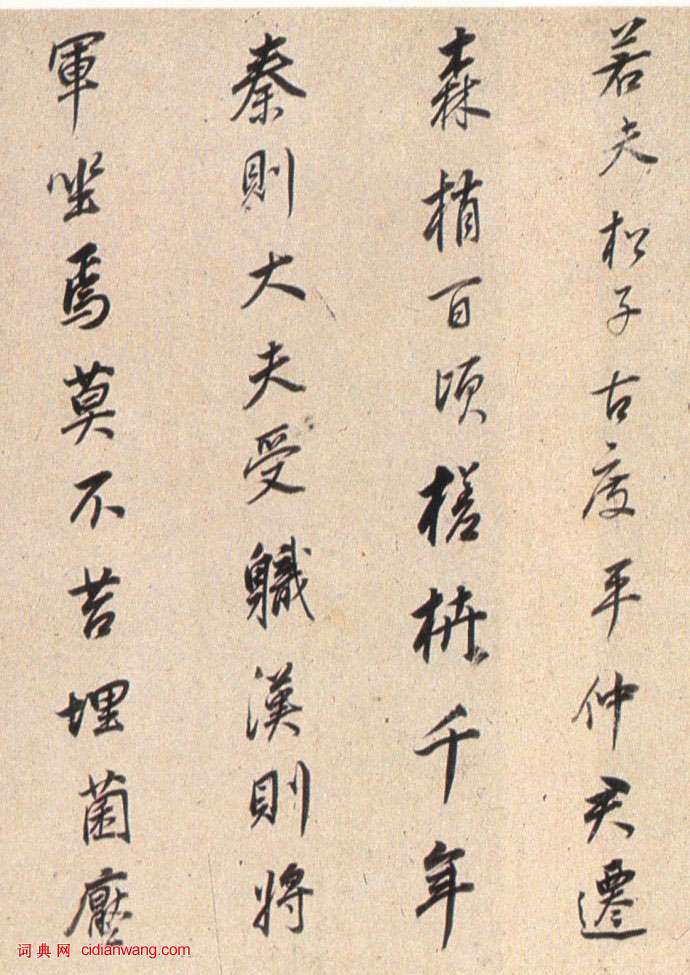 若夫松子古度平仲君遷
森梢百頃槎枿千年
秦則大夫受軄漢則將
軍坐焉莫不苔埋菌壓
词典网 cidianwang.com